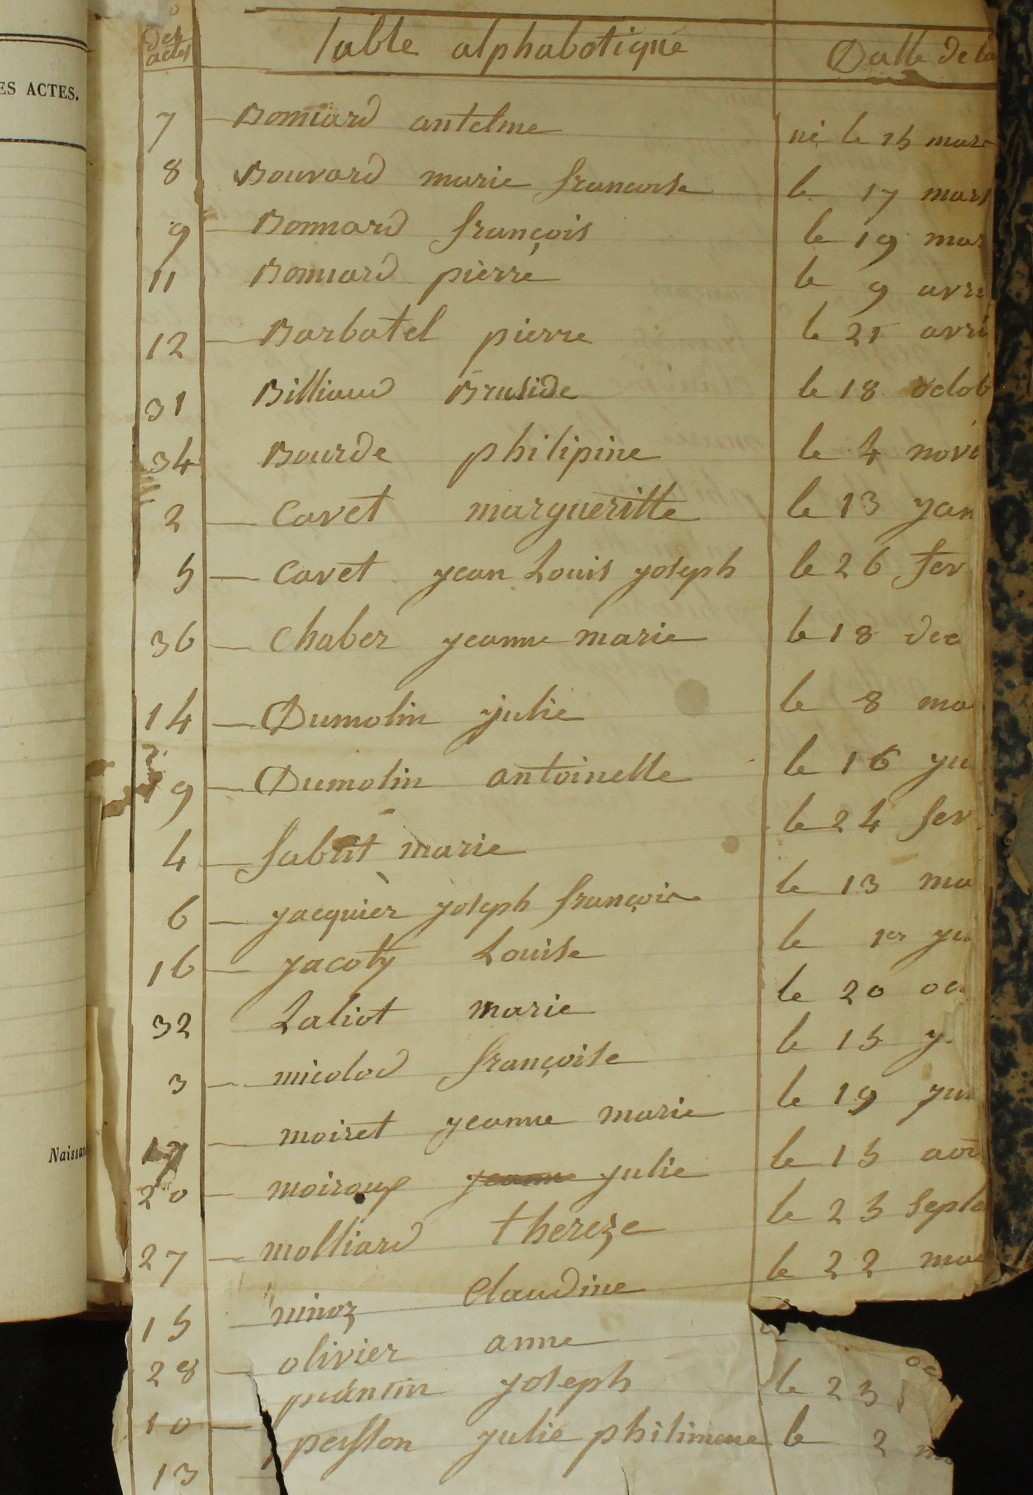 ES ACTES.
des actes Table alphabotique Datte de la
7 Bonnard antelme né le 15 mars
8 Bouvard marie francoise le 17 mars
9 Bonnard françois le 19 mar
11 Bonnard pierre le 9 avri
12 Barbatel pierre le 21 avri
31 Billiaud le 18 octob
34 Bourde philipine le 4 nove
2 Cavet margueritte le 13 yan
5 Cavet yean Louis yoseph le 26 fev
36 Chaber yeanne marie le 18 dec
14 Dumolin yulie le 8 ma
19 Dumolin antoinette le 16 yu
4 marie le 24 fev
6 yacquier yoseph françois le 13 ma
16 yacoty Louise le 1er yu
32 Laliot marie le 20 oc
3 micolod françoise le 15 y
17 moiret yeanne marie le 19 yui
Naissan
20 moiroux yeanne yulie le 15 aou
27 molliard thereze le 23 septe
15 ninoz Claudine le 22 mai
28 olivier anne
10 yoseph le 23
13 persson yulie philimene le 2 m